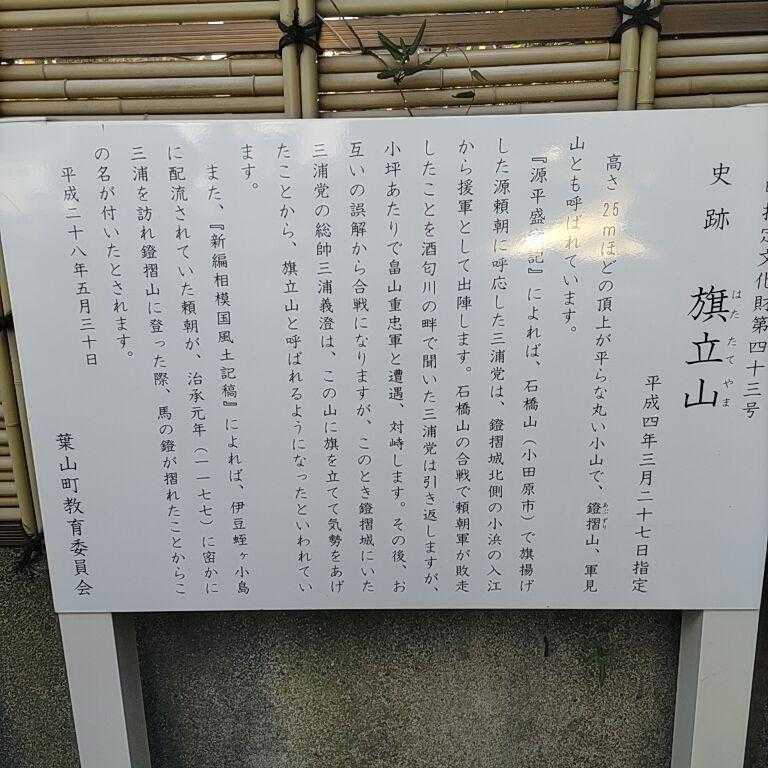 指定文化財第四十三号
史跡 旗立山
はた たて やま
平成四年三月二十七日指定
高さ25mほどの頂上が平らな丸い小山で、鐙摺山、軍見
あぶずり
山とも呼ばれています。
『源平盛 記』によれば、石橋山(小田原市)で旗揚げ
した源頼朝に呼応した三浦党は、鐙摺城北側の小浜の入江
から援軍として出陣します。石橋山の合戦で頼朝軍が敗走
したことを酒匂川の畔で聞いた三浦党は引き返しますが、
小坪あたりで畠山重忠軍と遭遇、対峙します。その後、お
互いの誤解から合戦になりますが、このとき鐙摺城にいた
三浦党の総帥三浦義澄は、この山に旗を立てて気勢をあげ
たことから、旗立山と呼ばれるようになったといわれてい
ます。
また、『新編相模国風土記稿』によれば、伊豆蛭ヶ小島
に配流されていた頼朝が、治承元年(一一七七)に密かに
三浦を訪れ鐙摺山に登った際、馬の鐙が摺れたことからこ
の名が付いたとされます。
平成二十八年五月三十日
葉山町教育委員会